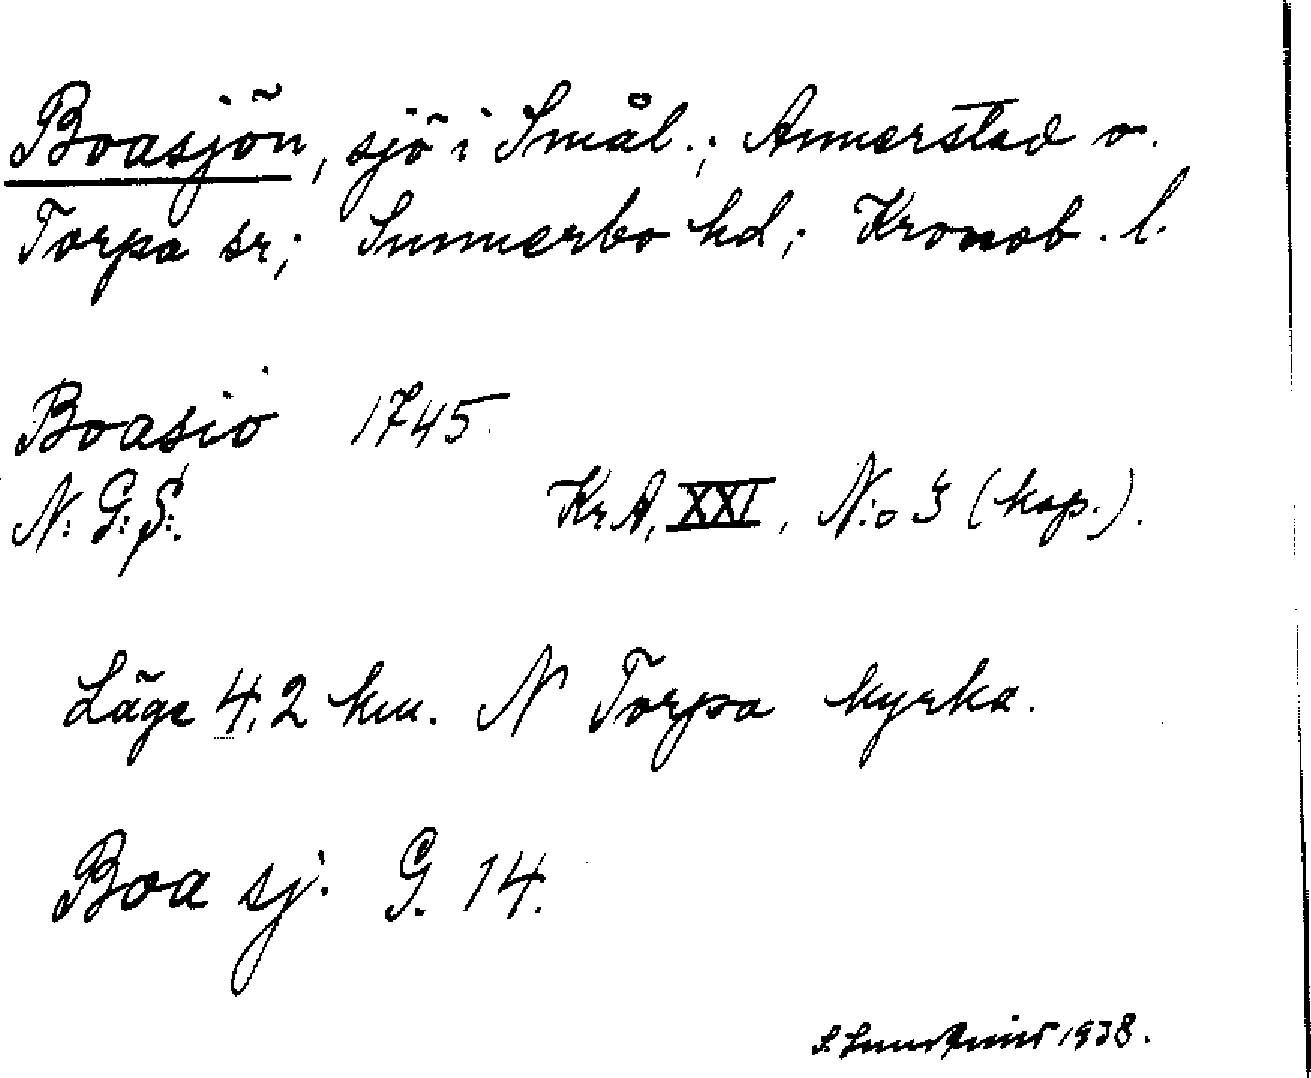 Boasjön, sjö i Smål.; Annerstad o.
Torpa sr; Sunnerbo hd; Kronob. l.
Boasiö 1745.
N: G: S:.
Kr. A, XXI, N:o 3 (kop.).
Läge 4,2 km. N Torpa kyrka.
Boa sj. G. 14.
1938.